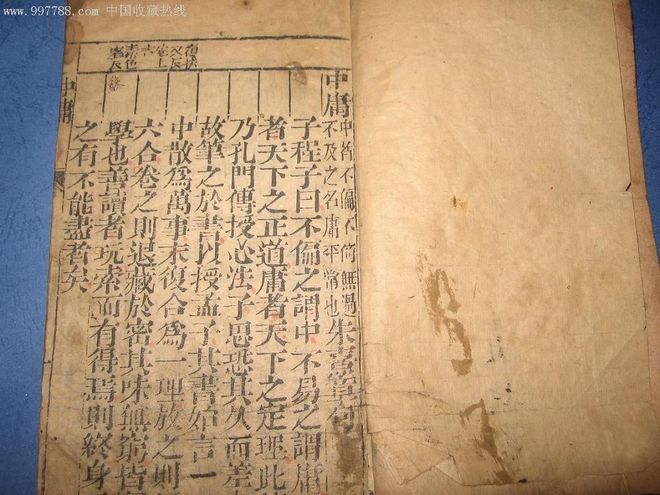 www.997788.com 中国收藏热线
中庸
中者不偏不倚無過
不及之名庸平常也
朱熹章句
子程子曰不偏之謂中不易之謂庸
者天下之正道庸者天下之定理此
乃孔門傳授心法子思恐其久而差
故筆之於書以授孟子其書始言一
中散爲萬事末復合爲一理放之則
六合卷之則退藏於密其味無窮皆
學也善讀者玩索而有得焉則終身
之有不能盡者矣
中庸